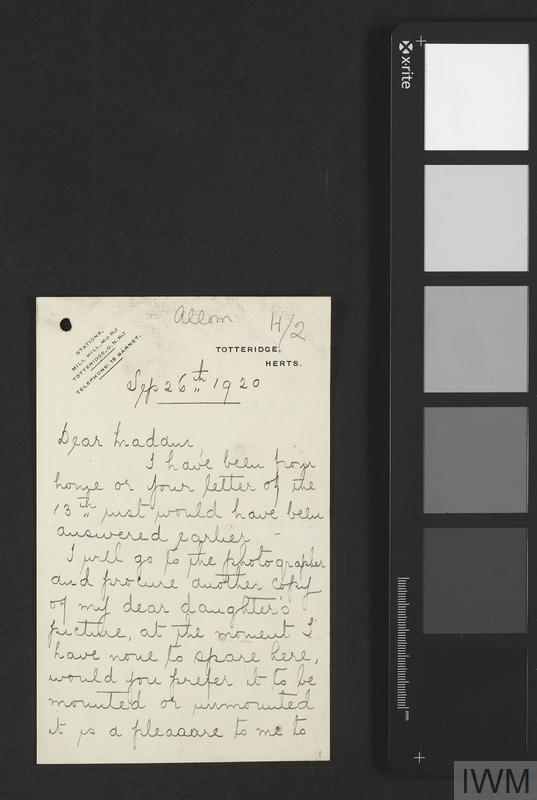 Allom
H/2
STATIONS,
MILL HILL, MID RLY
TOTTERIDGE, G.N. RLY
TELEPHONE: 19 BARNET.
TOTTERIDGE,
HERTS.
Sep 26th 1920
Dear Madam
I have been from
home or your letter of the
13th inst would have been
answered earlier -
I will go to the photographer
and procure another copy
of my dear daughter's
picture, at the moment I
have none to spare here,
would you prefer it to be
mounted or unmounted
it is a pleasure to me to
x-rite
mm
IWM